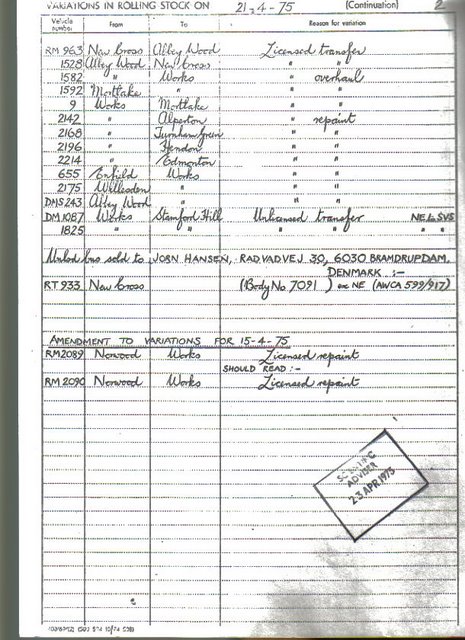 VARIATIONS IN ROLLING STOCK ON 21-4-75 (Continuation) 2
Vehicle number From To Reason for variation
RM 963 New Cross Abbey Wood Licensed transfer
1528 Abbey Wood New Cross " "
1582 " Works " overhaul
1592 Mortlake " " "
9 Works Mortlake " "
2142 " Alperton " repaint
2168 " Turnham Green " "
2196 " Hendon " "
2214 " Edmonton " "
655 Enfield Works " "
2175 Willesden " " "
DMS 243 Abbey Wood " " "
DM 1087 Works Stamford Hill Unlicensed transfer NE to SVS
1825 " " " " " "
bus sold to JORN HANSEN, RADVADVEJ 30, 6030 BRAMDRUPDAM,
DENMARK :-
RT 933 New Cross (Body No 7091 ) ex NE (AWCA 599/917)
AMENDMENT TO VARIATIONS FOR 15-4-75
RM2089 Norwood Works Licensed repaint
SHOULD READ :-
RM 2090 Norwood Works Licensed repaint
SCIENTIFIC
ADVISER
23 APR 1975